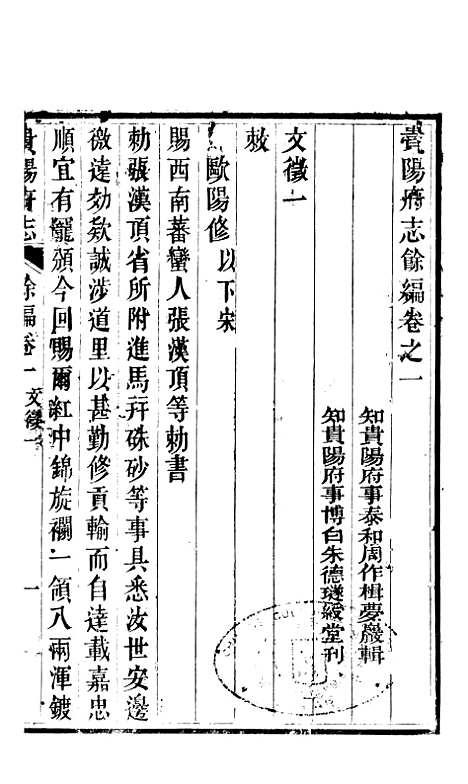 貴陽府志餘編卷之一
知貴陽府事泰和周作楫夢巖輯
知貴陽府事博白朱德璲緩堂刊
文徵一
敕
歐陽修以下宋
賜西南蕃蠻人張漢頂等勅書
勅張漢頂省所附進馬幷硃砂等事具悉汝世安邊
徼達効欵誠涉道里以甚勤修貢輸而自達載嘉忠
順宜有寵頒今回賜爾紅中錦旋襴一領八兩渾鍍
貴陽府志 餘編卷一 文徵一 一